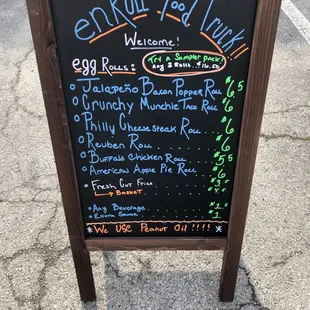 enRoll food Truck!!
Welcome!
egg Rolls:
Try A Sampler pack!
Any 3 Rolls $16.50
Jalapeño Bacon Popper Roll $6.5
Crunchy Munchie Taco Roll $6
Philly CheeseSteak Roll $6
Reuben Roll $6
Buffalo Chicken Roll $5.5
American Apple Pie Roll $6
Fresh Cut Fries
Basket
Any Beverage $1
Extra Sauce $1
*We Use Peanut Oil!!!!*